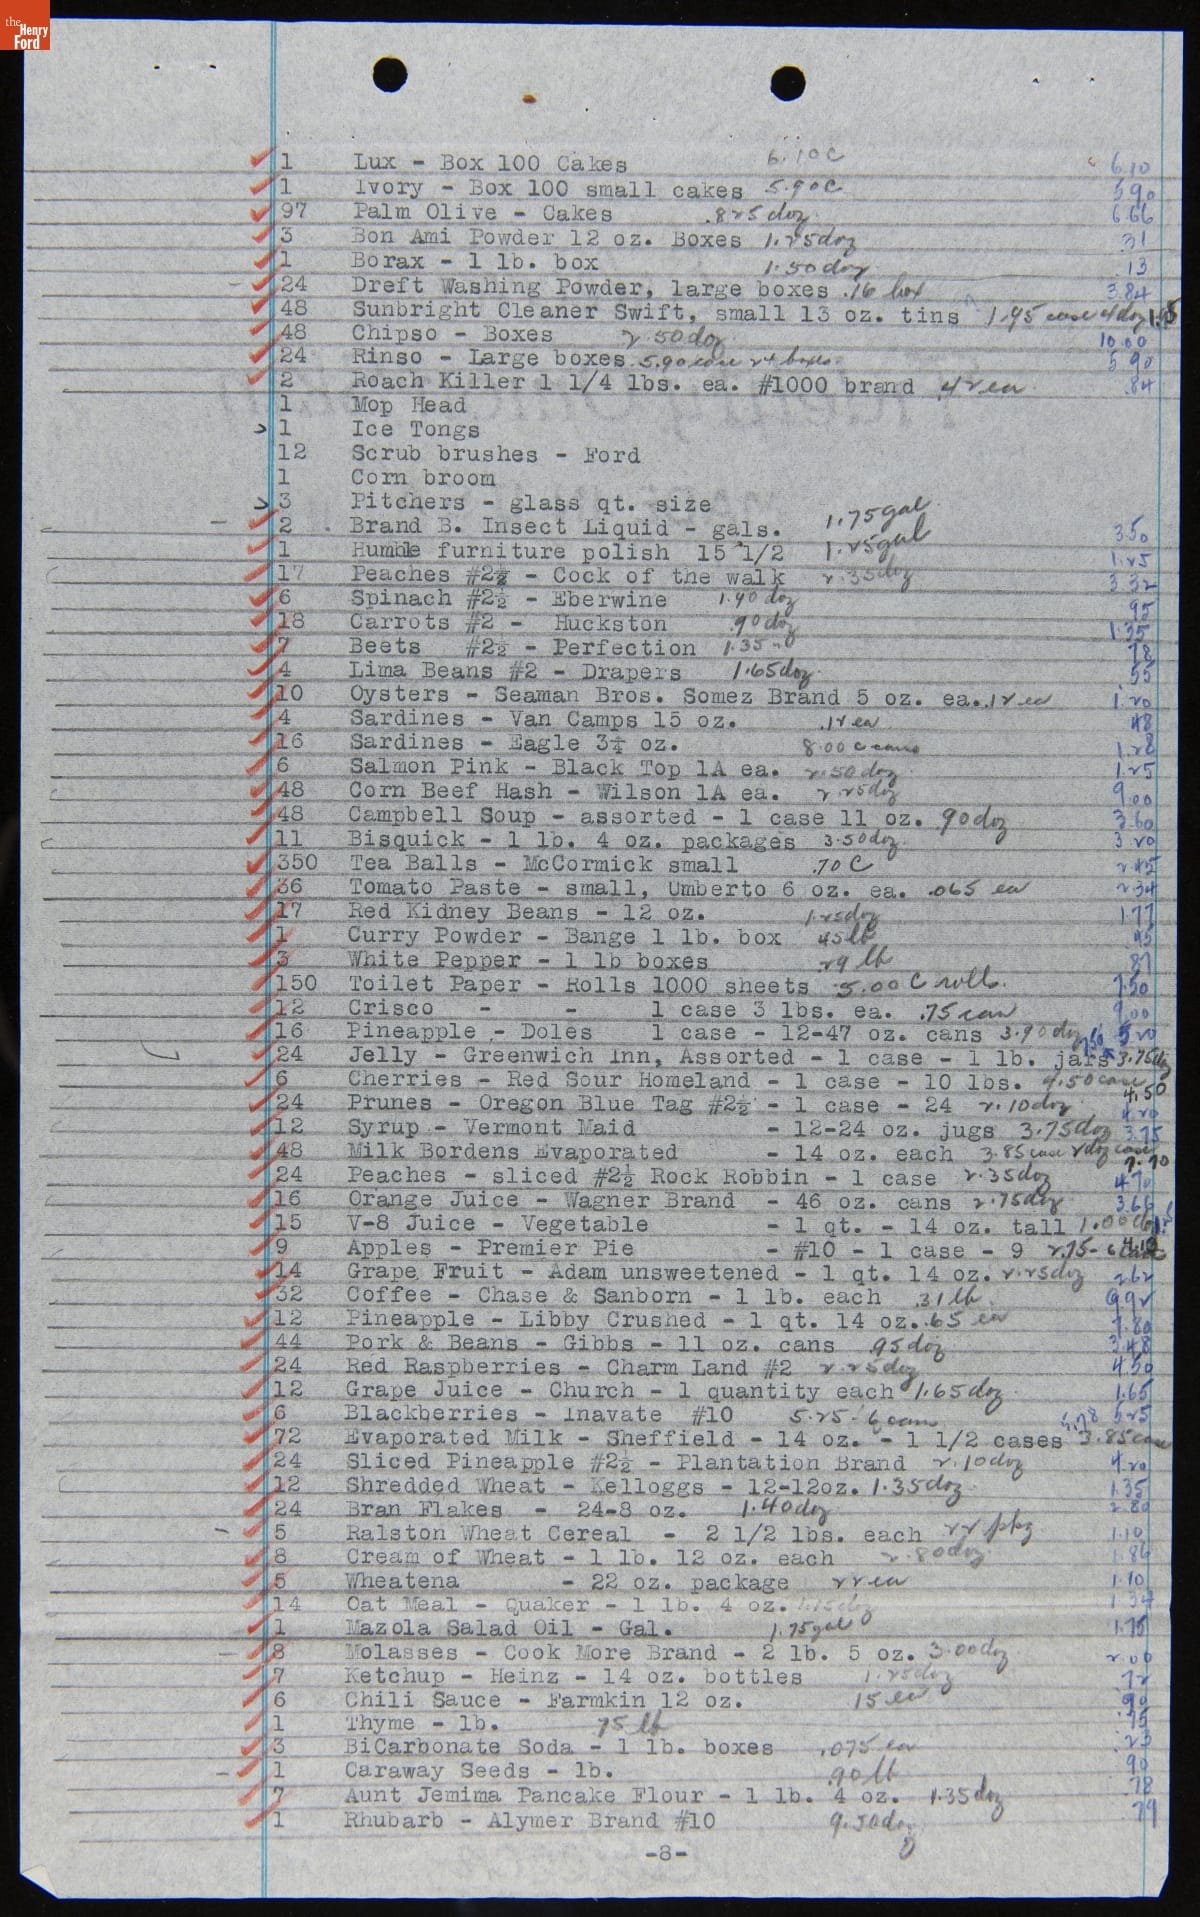 the Henry Ford
1 Lux - Box 100 Cakes 6.10 C 6.10
1 Ivory - Box 100 small cakes 5.90 C 5.90
97 Palm Olive - Cakes .825 doz. 6.66
3 Bon Ami Powder 12 oz. Boxes 1.25 doz .31
1 Borax - 1 lb. box 1.50 doz .13
24 Dreft Washing Powder, large boxes .16 box 3.84
48 Sunbright Cleaner Swift, small 13 oz. tins 1.95 case 4 doz
48 Chipso - Boxes 2.50 doz 10.00
24 Rinso - Large boxes 5.90 case 24 boxes 5.90
2 Roach Killer 1 1/4 lbs. ea. #1000 brand .42 ea .84
1 Mop Head
> 1 Ice Tongs
12 Scrub brushes - Ford
1 Corn broom
> 3 Pitchers - glass qt. size
2 Brand B. Insect Liquid - gals. 1.75 gal 3.50
1 Humble furniture polish 15 1/2 1.25 gal 1.25
17 Peaches #2½ - Cock of the walk 2.35 doz 3.32
6 Spinach #2½ - Eberwine 1.90 doz .95
18 Carrots #2 - Huckston .90 doz 1.35
7 Beets #2½ - Perfection 1.35 - .78
4 Lima Beans #2 - Drapers 1.65 doz. .55
10 Oysters - Seaman Bros. Somez Brand 5 oz. ea. .12 ea 1.20
4 Sardines - Van Camps 15 oz. .12 ea .48
16 Sardines - Eagle 3¼ oz. 8.00 C cans 1.28
6 Salmon Pink - Black Top 1A ea. 2.50 doz. 1.25
48 Corn Beef Hash - Wilson 1A ea. 2.25 doz 9.00
48 Campbell Soup - assorted - 1 case 11 oz. .90 doz 3.60
11 Bisquick - 1 lb. 4 oz. packages 3.50 doz. 3.20
350 Tea Balls - McCormick small .70 C 2.45
36 Tomato Paste - small, Umberto 6 oz. ea. .065 ea 2.34
17 Red Kidney Beans - 12 oz. 1.25 doz 1.77
1 Curry Powder - Bange 1 lb. box .45 lb .45
3 White Pepper - 1 lb boxes .29 lb .87
150 Toilet Paper - Rolls 1000 sheets 5.00 C rolls. 7.50
12 Crisco - - 1 case 3 lbs. ea. .75 can 9.00
16 Pineapple - Doles 1 case - 12-47 oz. cans 3.90 doz 5.20
24 Jelly - Greenwich Inn, Assorted - 1 case - 1 lb. jars 3.75 doz 7.50
6 Cherries - Red Sour Homeland - 1 case - 10 lbs. 4.50 case 4.50
24 Prunes - Oregon Blue Tag #2½ - 1 case - 24 2.10 doz 4.20
12 Syrup - Vermont Maid - 12-24 oz. jugs 3.75 doz 3.75
48 Milk Bordens Evaporated - 14 oz. each 3.85 case 2 doz case 7.70
24 Peaches - sliced #2½ Rock Robbin - 1 case 2.35 doz 4.70
16 Orange Juice - Wagner Brand - 46 oz. cans 2.75 doz 3.66
15 V-8 Juice - Vegetable - 1 qt. - 14 oz. tall 1.00 doz 1.25
9 Apples - Premier Pie - #10 - 1 case - 9 2.75 - 6 cans 4.12
14 Grape Fruit - Adam unsweetened - 1 qt. 14 oz. 2.25 doz 2.62
32 Coffee - Chase & Sanborn - 1 lb. each .31 lb. 9.92
12 Pineapple - Libby Crushed - 1 qt. 14 oz. .65 ea 7.80
44 Pork & Beans - Gibbs - 11 oz. cans .95 doz 3.48
24 Red Raspberries - Charm Land #2 2.25 doz 4.50
12 Grape Juice - Church - 1 quantity each 1.65 doz. 1.65
6 Blackberries - Inavate #10 5.25 - 6 cans 5.25
72 Evaporated Milk - Sheffield - 14 oz. - 1 1/2 cases 3.85 case 5.78
24 Sliced Pineapple #2½ - Plantation Brand 2.10 doz 4.20
12 Shredded Wheat - Kelloggs - 12-12oz. 1.35 doz. 1.35
24 Bran Flakes - 24-8 oz. 1.40 doz 2.80
5 Ralston Wheat Cereal - 2 1/2 lbs. each 22 pkg 1.10
8 Cream of Wheat - 1 lb. 12 oz. each 2.80 doz. 1.86
5 Wheatena - 22 oz. package 22 ea 1.10
14 Oat Meal - Quaker - 1 lb. 4 oz. 1.15 doz 1.34
1 Mazola Salad Oil - Gal. 1.75 gal 1.75
8 Molasses - Cook More Brand - 2 lb. 5 oz. 3.00 doz 2.00
7 Ketchup - Heinz - 14 oz. bottles 1.25 doz .72
6 Chili Sauce - Farmkin 12 oz. 15 ea .90
1 Thyme - lb. 75 lb .75
3 BiCarbonate Soda - 1 lb. boxes .075 ea .23
1 Caraway Seeds - lb. .90 lb .90
7 Aunt Jemima Pancake Flour - 1 lb. 4 oz. 1.35 doz .78
1 Rhubarb - Alymer Brand #10 9.50 doz .79
-8-